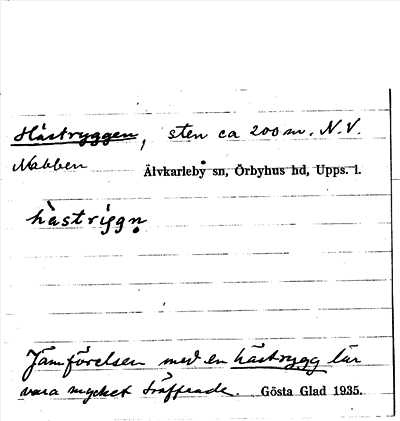 Hästryggen, sten ca 200 m. N.V.
Nabben Älvkarleby sn, Örbyhus hd, Upps. l.
hàstriggn
Jämförelsen med en hästrygg lär
vara mycket träffande. Gösta Glad 1935.